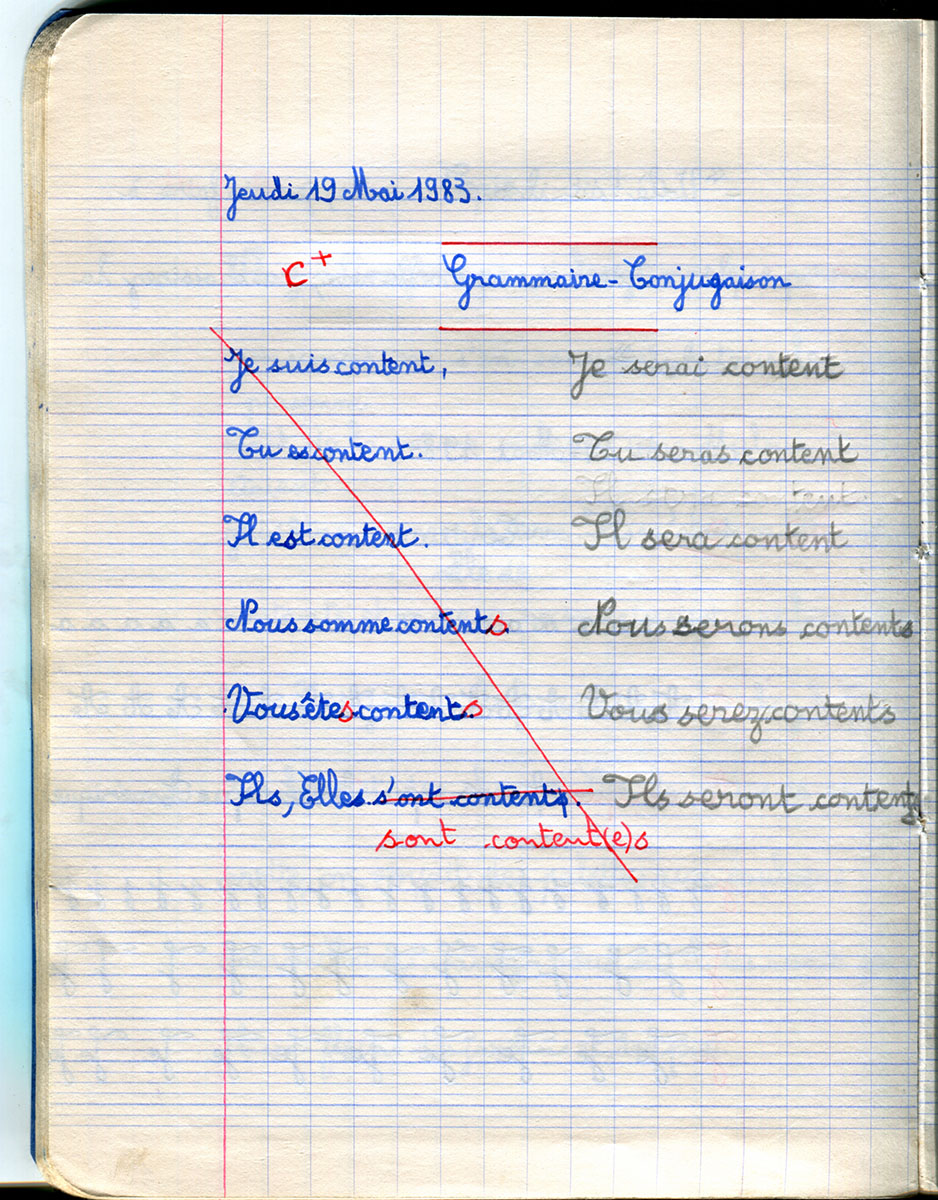 Jeudi 19 Mai 1983.
C+ Grammaire-Conjugaison
Je suis content, Je serai content
Tu es content. Tu seras content
Il est content. Il sera content
Nous somme contents. Nous serons contents
Vous êtes contents. Vous serez contents
Ils, Elles s'ont contents. Ils seront contents
sont content(e)s